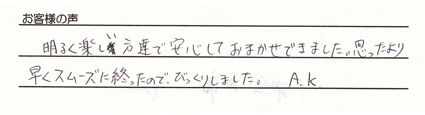 お客様の声
明るく楽しい方達で安心しておまかせできました。思ったより
早くスムーズに終ったので、びっくりしました。 A.K